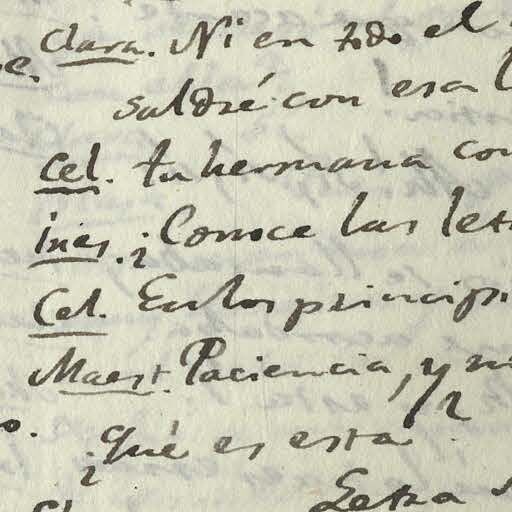 Clara. Ni en todo el
saldré con esa
Cel. tu hermana con
Ines. ¿Conoce las let
Cel. En los principi
Maest. Paciencia, y
¿qué es esta?
Letra